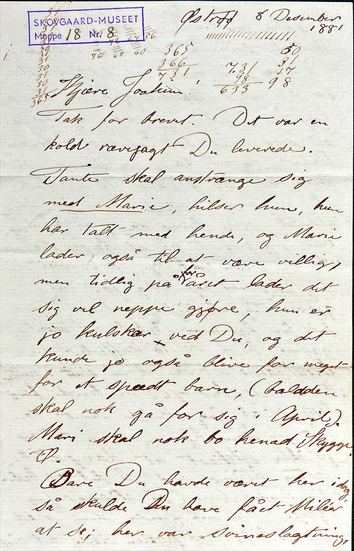 SKOVGAARD-MUSEET
Mappe 18 Nr. 8
8 Desember
1881
365
366
731
731
98
633
50
31
17
98
Kjære Joakim!
Tak for brevet. Det var en
kold rævejagt Du leverede.
Tante skal anstrænge sig
med Marie, hilser hun, hun
har talt med hende, og Marie
lader også til at være villig,
men tidlig på året lader det
sig vel neppe gjøre, hun er
jo kulskær ved Du, og det
kunde jo også blive for meget
for et spædt barn, (
skal nok gå for sig i April)
Mari skal nok bo henad Skygge
til.
Bare Du havde været her idag
så skulde Du have fået Milier
at se; her var svineslagtning,